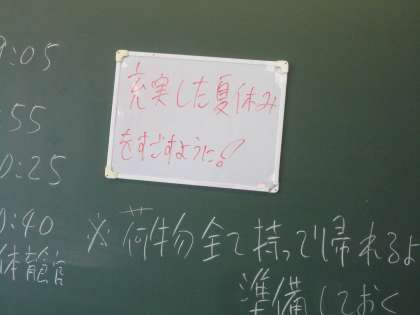 9:05
:55
0:25
0:40
体育館
充実した夏休み
をすごすように!
※荷物全て持って帰れるよ
準備しておく